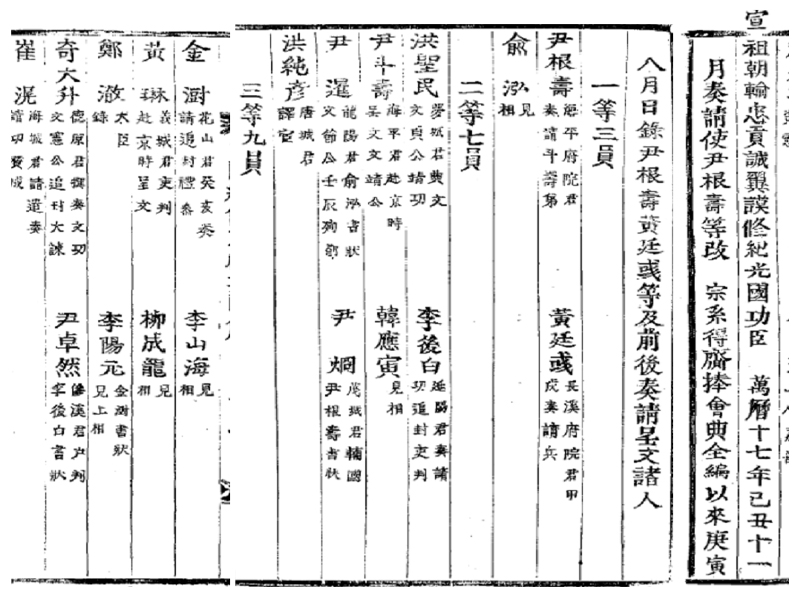 宣祖朝輸忠貢誠翼謨修紀光國功臣 萬曆十七年己丑十一
月奏請使尹根壽等改 宗系得齎捧會典全編以來庚寅
八月日錄尹根壽黃廷彧等及前後奏請呈文諸人
一等三員
尹根壽 海平府院君 奏請斗壽弟 黃廷彧 長溪府院君甲 戊奏請兵
兪泓 見相
二等七員
洪聖民 城君典文 文貞公靖功 李後白 延陽君奏請 功追封吏判
尹斗壽 海平君赴京時 呈文文靖公 韓應寅 見相
尹暹 龍陽君兪泓書狀 文節公壬辰殉節 尹烱 茂城君輔國 尹根壽書狀
洪純彥 唐城君 譯官
三等九員
金澍 花山君癸亥奏 請追封禮參 李山海 見相
黃琳 義城君吏判 赴京時呈文 柳成龍 見相
鄭澈 大臣 錄 李陽元 金澍書狀 見上相
奇大升 德原君撰奏文功 文憲公追封大諫 尹卓然 溪君戶判 李後白書狀
崔滉 海城君請還奏 功贊成